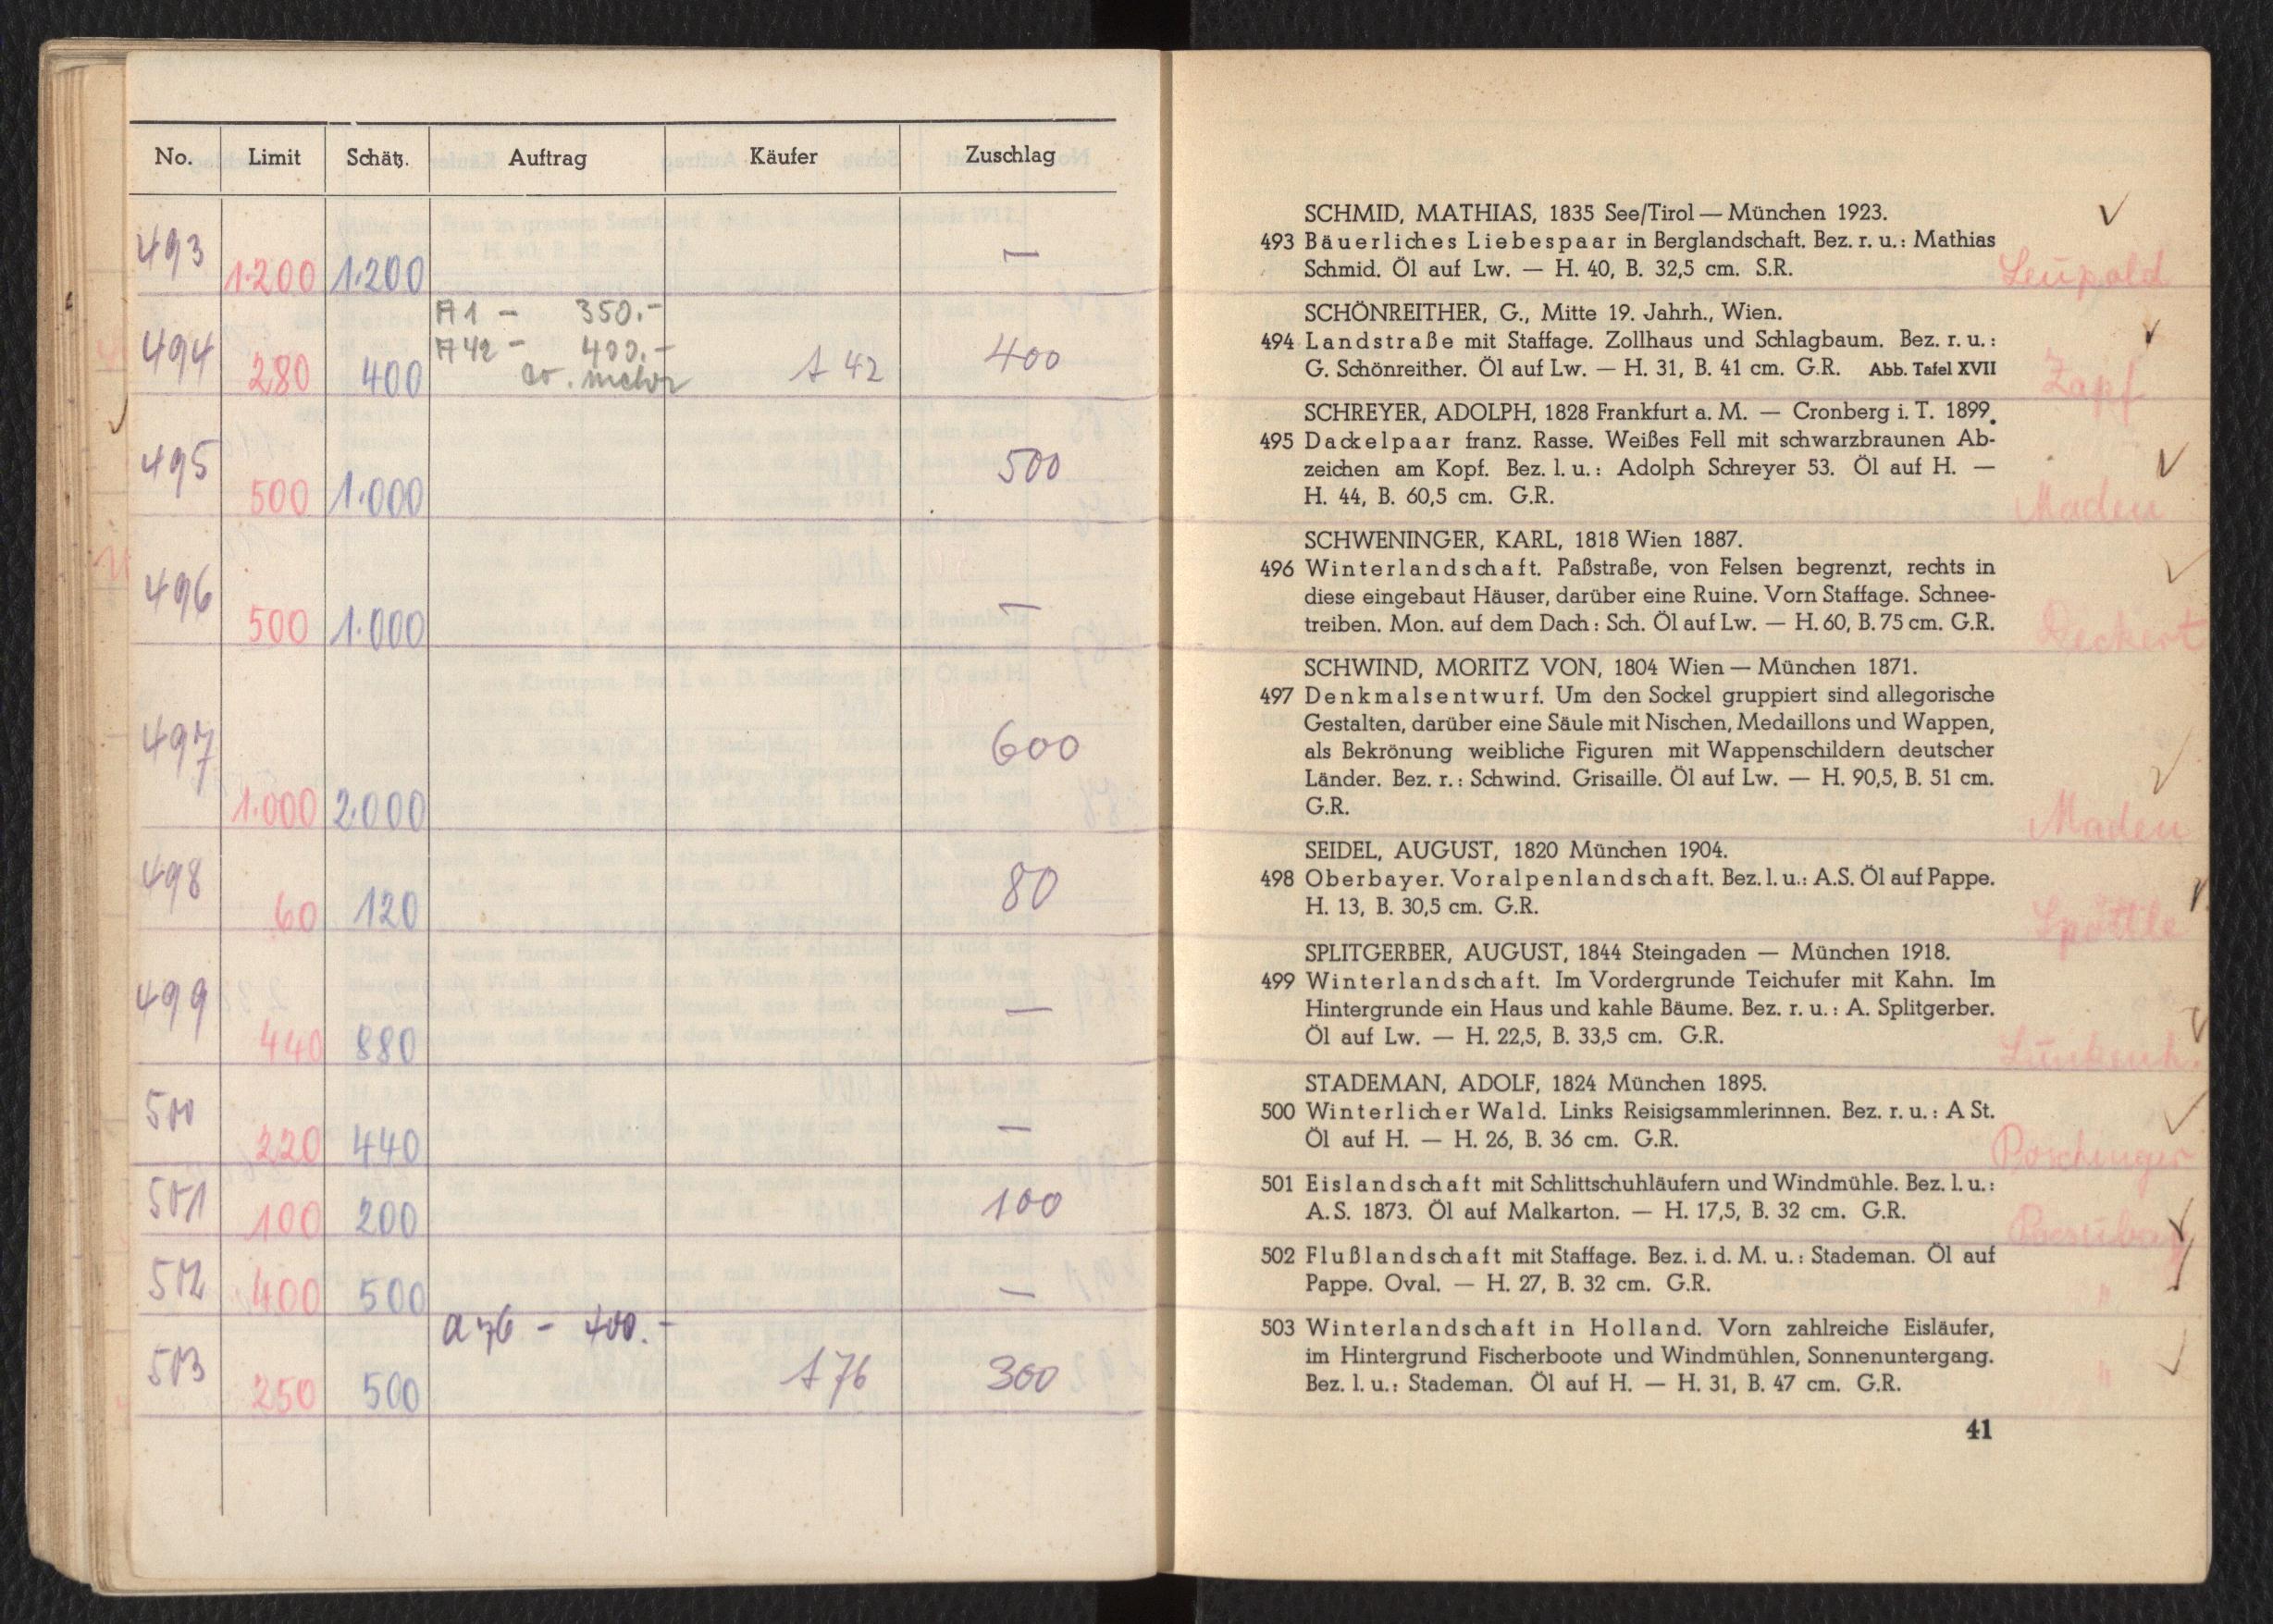 No. Limit Schätz. Auftrag Käufer Zuschlag
493 1.200 1.200 —
A1 - 350.-
494 280 400 A42 - 400.- A 42 400
ev. mehr
495 500 1.000 500
496 500 1.000 —
497 1.000 2.000 600
498 60 120 80
499 440 880 —
500 220 440 —
501 100 200 100
502 400 500 —
a 76 - 400.-
503 250 500 A 76 300
SCHMID, MATHIAS, 1835 See/Tirol — München 1923. ✓
493 Bäuerliches Liebespaar in Berglandschaft. Bez. r. u.: Mathias
Schmid. Öl auf Lw. — H. 40, B. 32,5 cm. S.R. Leupold
SCHÖNREITHER, G., Mitte 19. Jahrh., Wien.
494 Landstraße mit Staffage. Zollhaus und Schlagbaum. Bez. r. u.: ✓
G. Schönreither. Öl auf Lw. — H. 31, B. 41 cm. G.R. Abb. Tafel XVII Zapf
SCHREYER, ADOLPH, 1828 Frankfurt a. M. — Cronberg i. T. 1899.
495 Dackelpaar franz. Rasse. Weißes Fell mit schwarzbraunen Ab-
zeichen am Kopf. Bez. l. u.: Adolph Schreyer 53. Öl auf H. — ✓
H. 44, B. 60,5 cm. G.R. Maden
SCHWENINGER, KARL, 1818 Wien 1887.
496 Winterlandschaft. Paßstraße, von Felsen begrenzt, rechts in ✓
diese eingebaut Häuser, darüber eine Ruine. Vorn Staffage. Schnee-
treiben. Mon. auf dem Dach: Sch. Öl auf Lw. — H. 60, B. 75 cm. G.R. Deckert
SCHWIND, MORITZ VON, 1804 Wien — München 1871.
497 Denkmalsentwurf. Um den Sockel gruppiert sind allegorische
Gestalten, darüber eine Säule mit Nischen, Medaillons und Wappen,
als Bekrönung weibliche Figuren mit Wappenschildern deutscher
Länder. Bez. r.: Schwind. Grisaille. Öl auf Lw. — H. 90,5, B. 51 cm. ✓
G.R. Maden
SEIDEL, AUGUST, 1820 München 1904.
498 Oberbayer. Voralpenlandschaft. Bez. l. u.: A.S. Öl auf Pappe. ✓
H. 13, B. 30,5 cm. G.R. Spöttle
SPLITGERBER, AUGUST, 1844 Steingaden — München 1918.
499 Winterlandschaft. Im Vordergrunde Teichufer mit Kahn. Im
Hintergrunde ein Haus und kahle Bäume. Bez. r. u.: A. Splitgerber. ✓
Öl auf Lw. — H. 22,5, B. 33,5 cm. G.R. Lunkenh.
STADEMAN, ADOLF, 1824 München 1895.
500 Winterlicher Wald. Links Reisigsammlerinnen. Bez. r. u.: A St. ✓
Öl auf H. — H. 26, B. 36 cm. G.R. Poschinger
501 Eislandschaft mit Schlittschuhläufern und Windmühle. Bez. l. u.:
A. S. 1873. Öl auf Malkarton. — H. 17,5, B. 32 cm. G.R. ✓
502 Flußlandschaft mit Staffage. Bez. i. d. M. u.: Stademan. Öl auf
Pappe. Oval. — H. 27, B. 32 cm. G.R. " ✓
503 Winterlandschaft in Holland. Vorn zahlreiche Eisläufer,
im Hintergrund Fischerboote und Windmühlen, Sonnenuntergang. ✓
Bez. l. u.: Stademan. Öl auf H. — H. 31, B. 47 cm. G.R. "
41